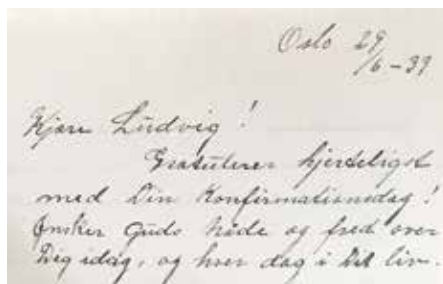 Oslo 29
/6-39
Kjære Ludvig!
Gratulerer hjerteligst
med Din Konfirmationsdag!
Ønsker Guds Nåde og fred over
Dig idag, og hver dag i Dit liv.